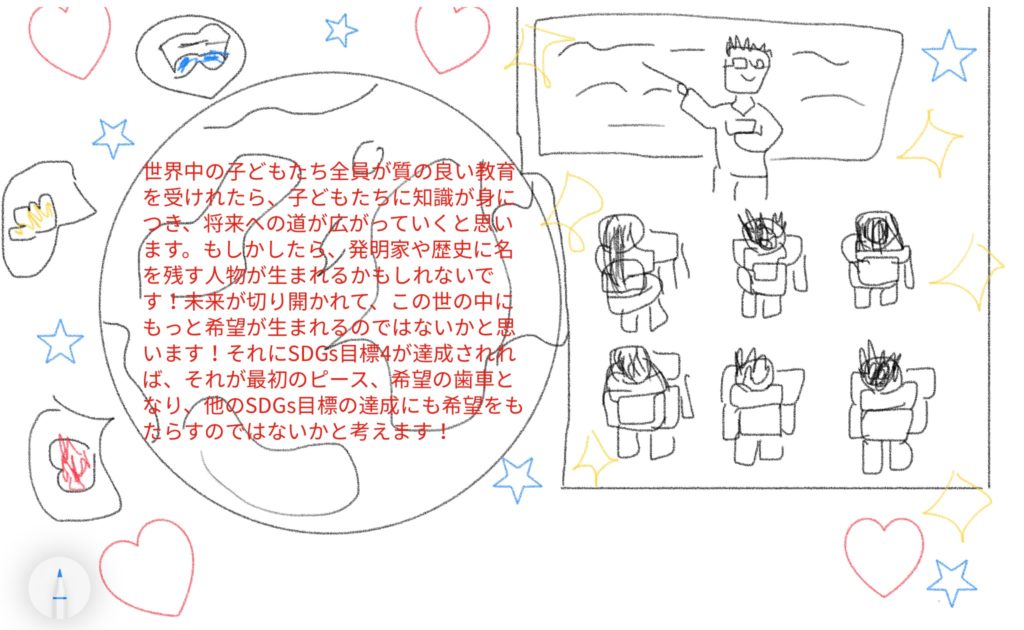 世界中の子どもたち全員が質の良い教育
を受けれたら、子どもたちに知識が身に
つき、将来への道が広がっていくと思い
ます。もしかしたら、発明家や歴史に名
を残す人物が生まれるかもしれないで
す！未来が切り開かれて、この世の中に
もっと希望が生まれるのではないかと思
います！それにSDGs目標4が達成されれ
ば、それが最初のピース、希望の歯車と
なり、他のSDGs目標の達成にも希望をも
たらすのではないかと考えます！